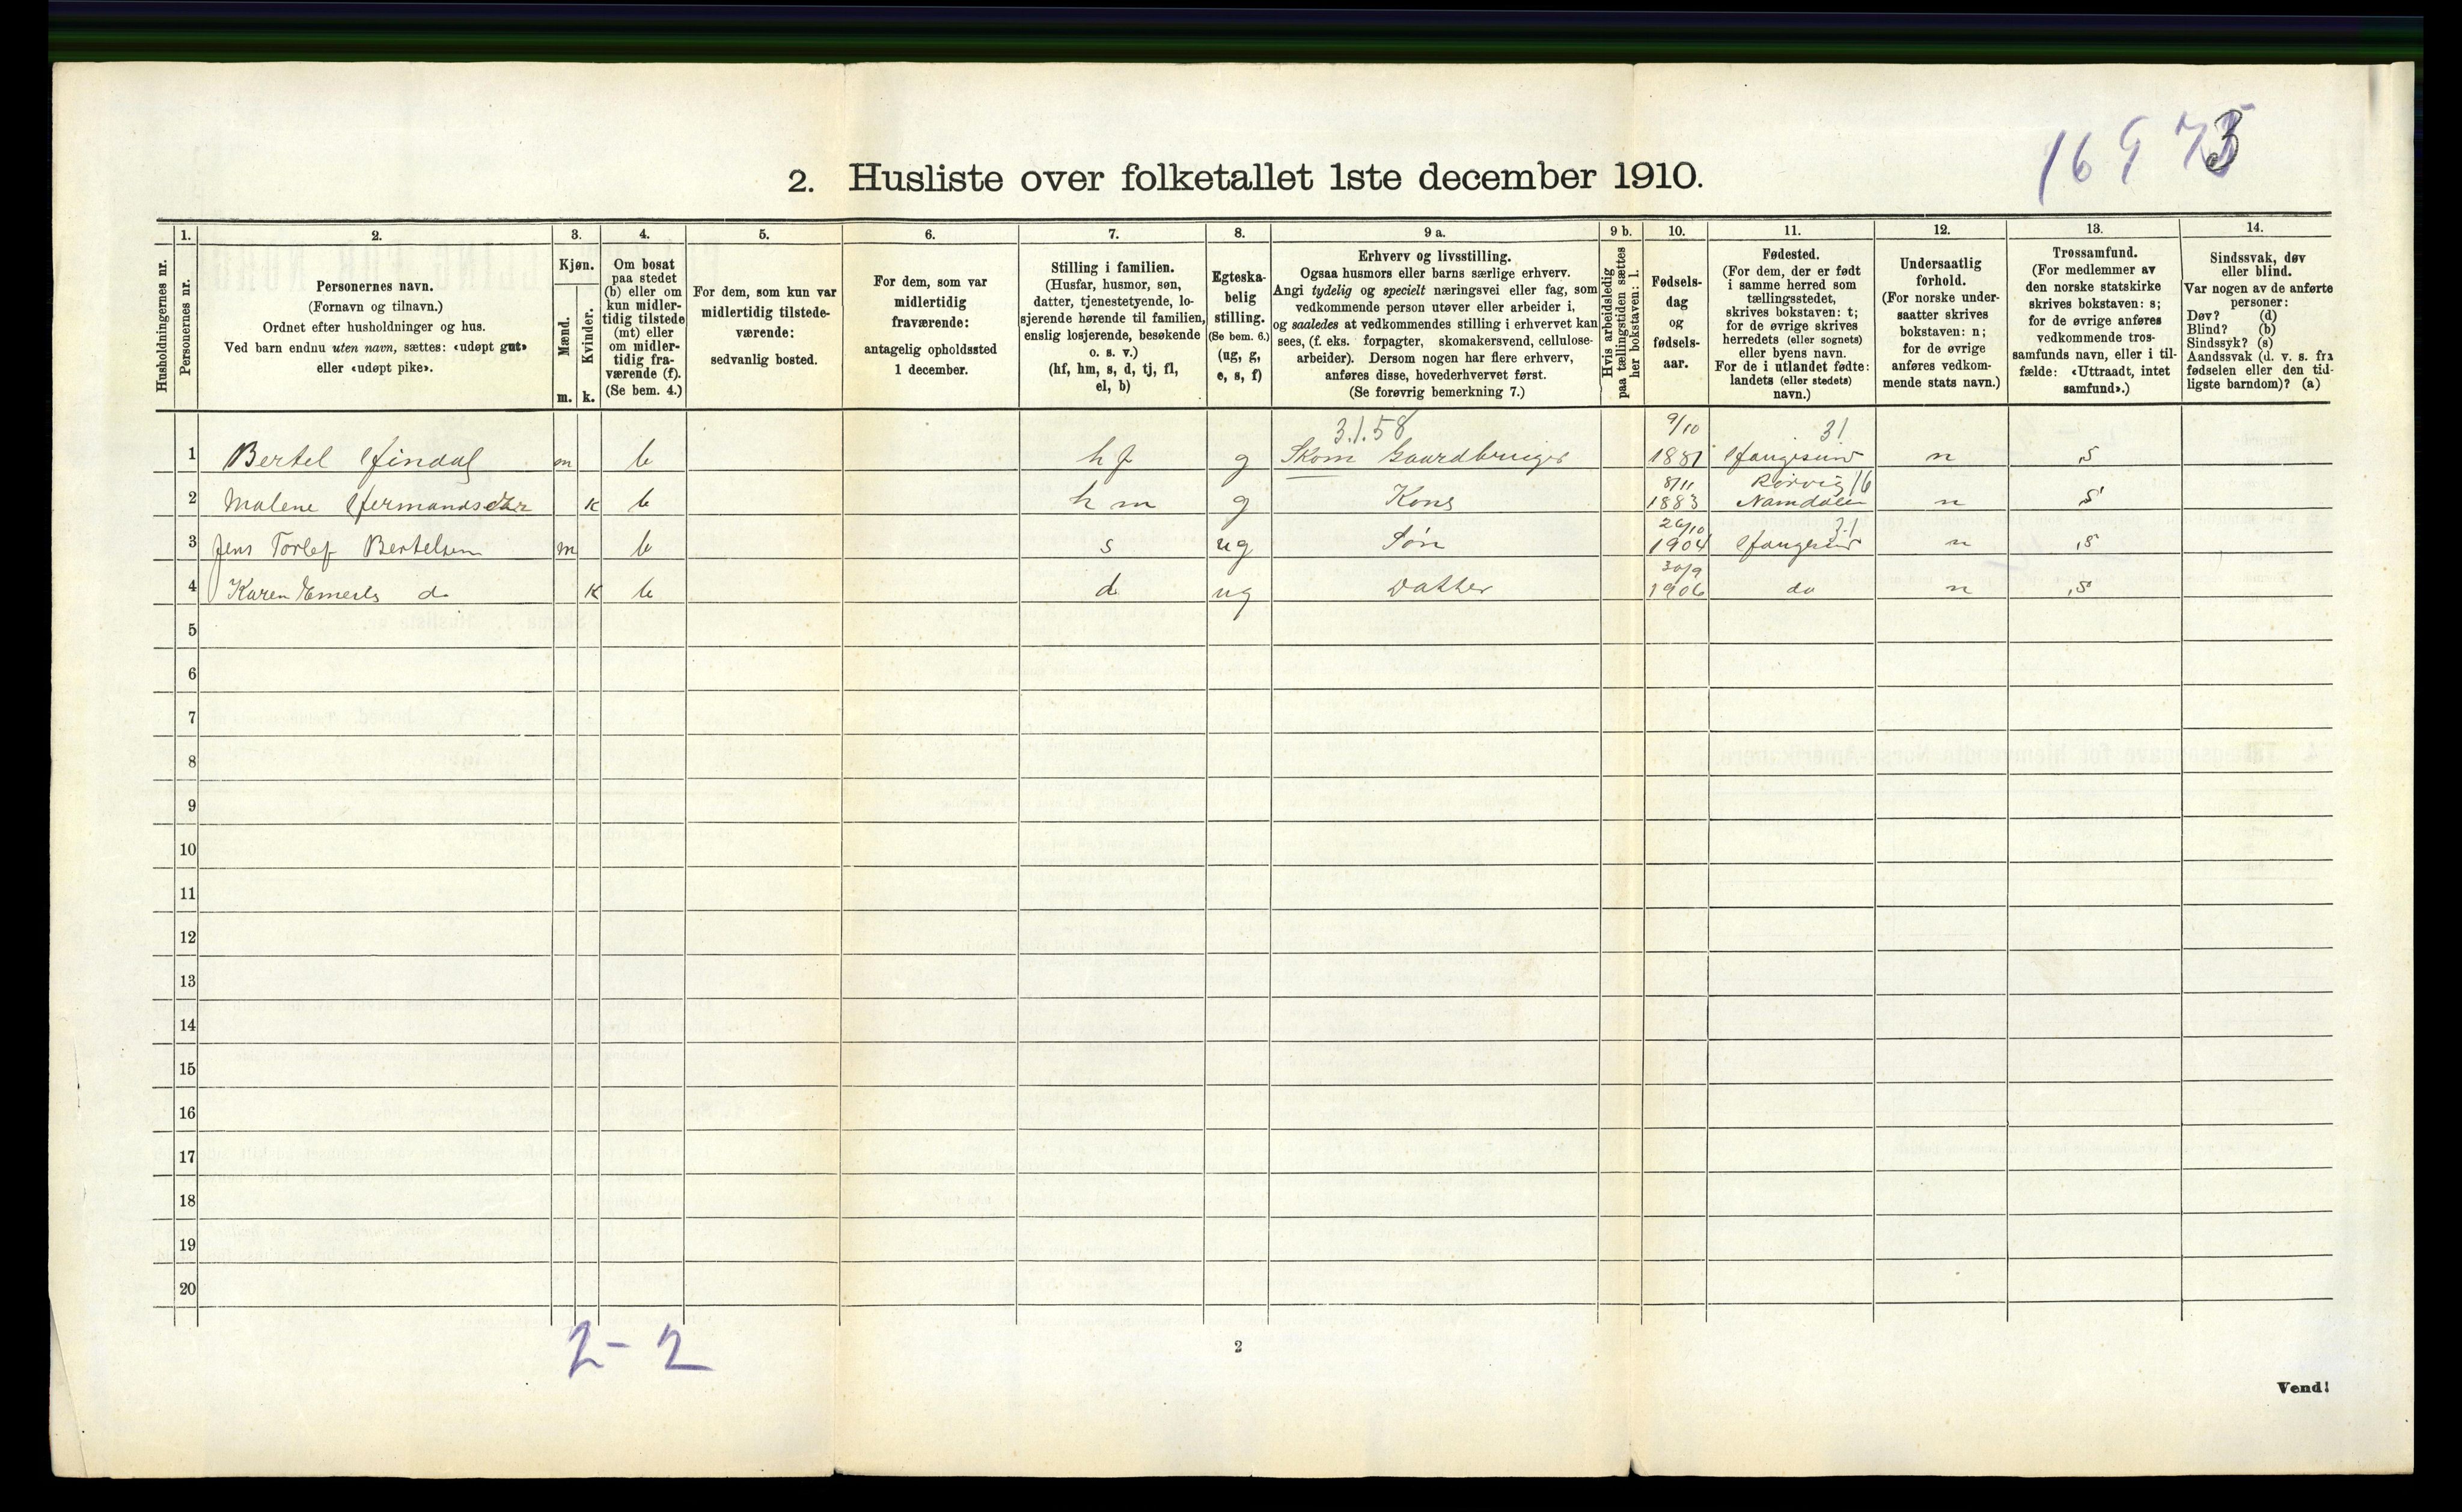 16973
2. Husliste over folketallet 1ste december 1910.
Husholdningernes nr.
1.
Personernes nr.
2.
Personernes navn.
(Fornavn og tilnavn.)
Ordnet efter husholdninger og hus.
Ved barn endnu uten navn, sættes: «udøpt gut»
eller «udøpt pike».
3.
Kjøn.
Mænd.
Kvinder.
m. k.
4.
Om bosat
paa stedet
(b) eller om
kun midler-
tidig tilstede
(mt) eller
om midler-
tidig fra-
værende (f).
(Se bem. 4.)
5.
For dem, som kun var
midlertidig tilstede-
værende:
sedvanlig bosted.
6.
For dem, som var
midlertidig
fraværende:
antagelig opholdssted
1 december.
7.
Stilling i familien.
(Husfar, husmor, søn,
datter, tjenestetyende, lo-
sjerende hørende til familien,
enslig losjerende, besøkende
o. s. v.)
(hf, hm, s, d, tj, fl,
el, b)
8.
Egteska-
belig
stilling.
(Se bem. 6.)
(ug, g,
e, s, f)
9 a.
Erhverv og livsstilling.
Ogsaa husmors eller barns særlige erhverv.
Angi tydelig og specielt næringsvei eller fag, som
vedkommende person utøver eller arbeider i,
og saaledes at vedkommendes stilling i erhvervet kan
sees, (f. eks. forpagter, skomakersvend, cellulose-
arbeider). Dersom nogen har flere erhverv,
anføres disse, hovederhvervet først.
(Se forøvrig bemerkning 7.)
9 b.
Hvis arbeidsledig
paa tællingstiden sættes
her bokstaven: l.
10.
Fødsels-
dag
og
fødsels-
aar.
11.
Fødested.
(For dem, der er født
i samme herred som
tællingsstedet,
skrives bokstaven: t;
for de øvrige skrives
herredets (eller sognets)
eller byens navn.
For de i utlandet fødte:
landets (eller stedets)
navn.)
12.
Undersaatlig
forhold.
(For norske under-
saatter skrives
bokstaven: n;
for de øvrige
anføres vedkom-
mende stats navn.)
13.
Trossamfund.
(For medlemmer av
den norske statskirke
skrives bokstaven: s;
for de øvrige anføres
vedkommende tros-
samfunds navn, eller i til-
fælde: «Uttraadt, intet
samfund».)
14.
Sindssvak, døv
eller blind.
Var nogen av de anførte
personer:
Døv? (d)
Blind? (b)
Sindssyk? (s)
Aandssvak (d. v. s. fra
fødselen eller den tid-
ligste barndom)? (a)
3.1.58 9/10 31
1 Bertel m b hf g Skom Gaardbruger 1881 n s
8/11 Rørvig 16
2 Malene k b hm g Kons 1883 Namdalen n s
26/10 31
3 Jens Torlef Bertelsen m b s ug Søn 1904 n s
30/9
4 Karen do k b d ug Datter 1906 do n s
5
6
7
8
9
10
11
12
13
14
15
16
17
18
19
20
2 - 2
2
Vend!